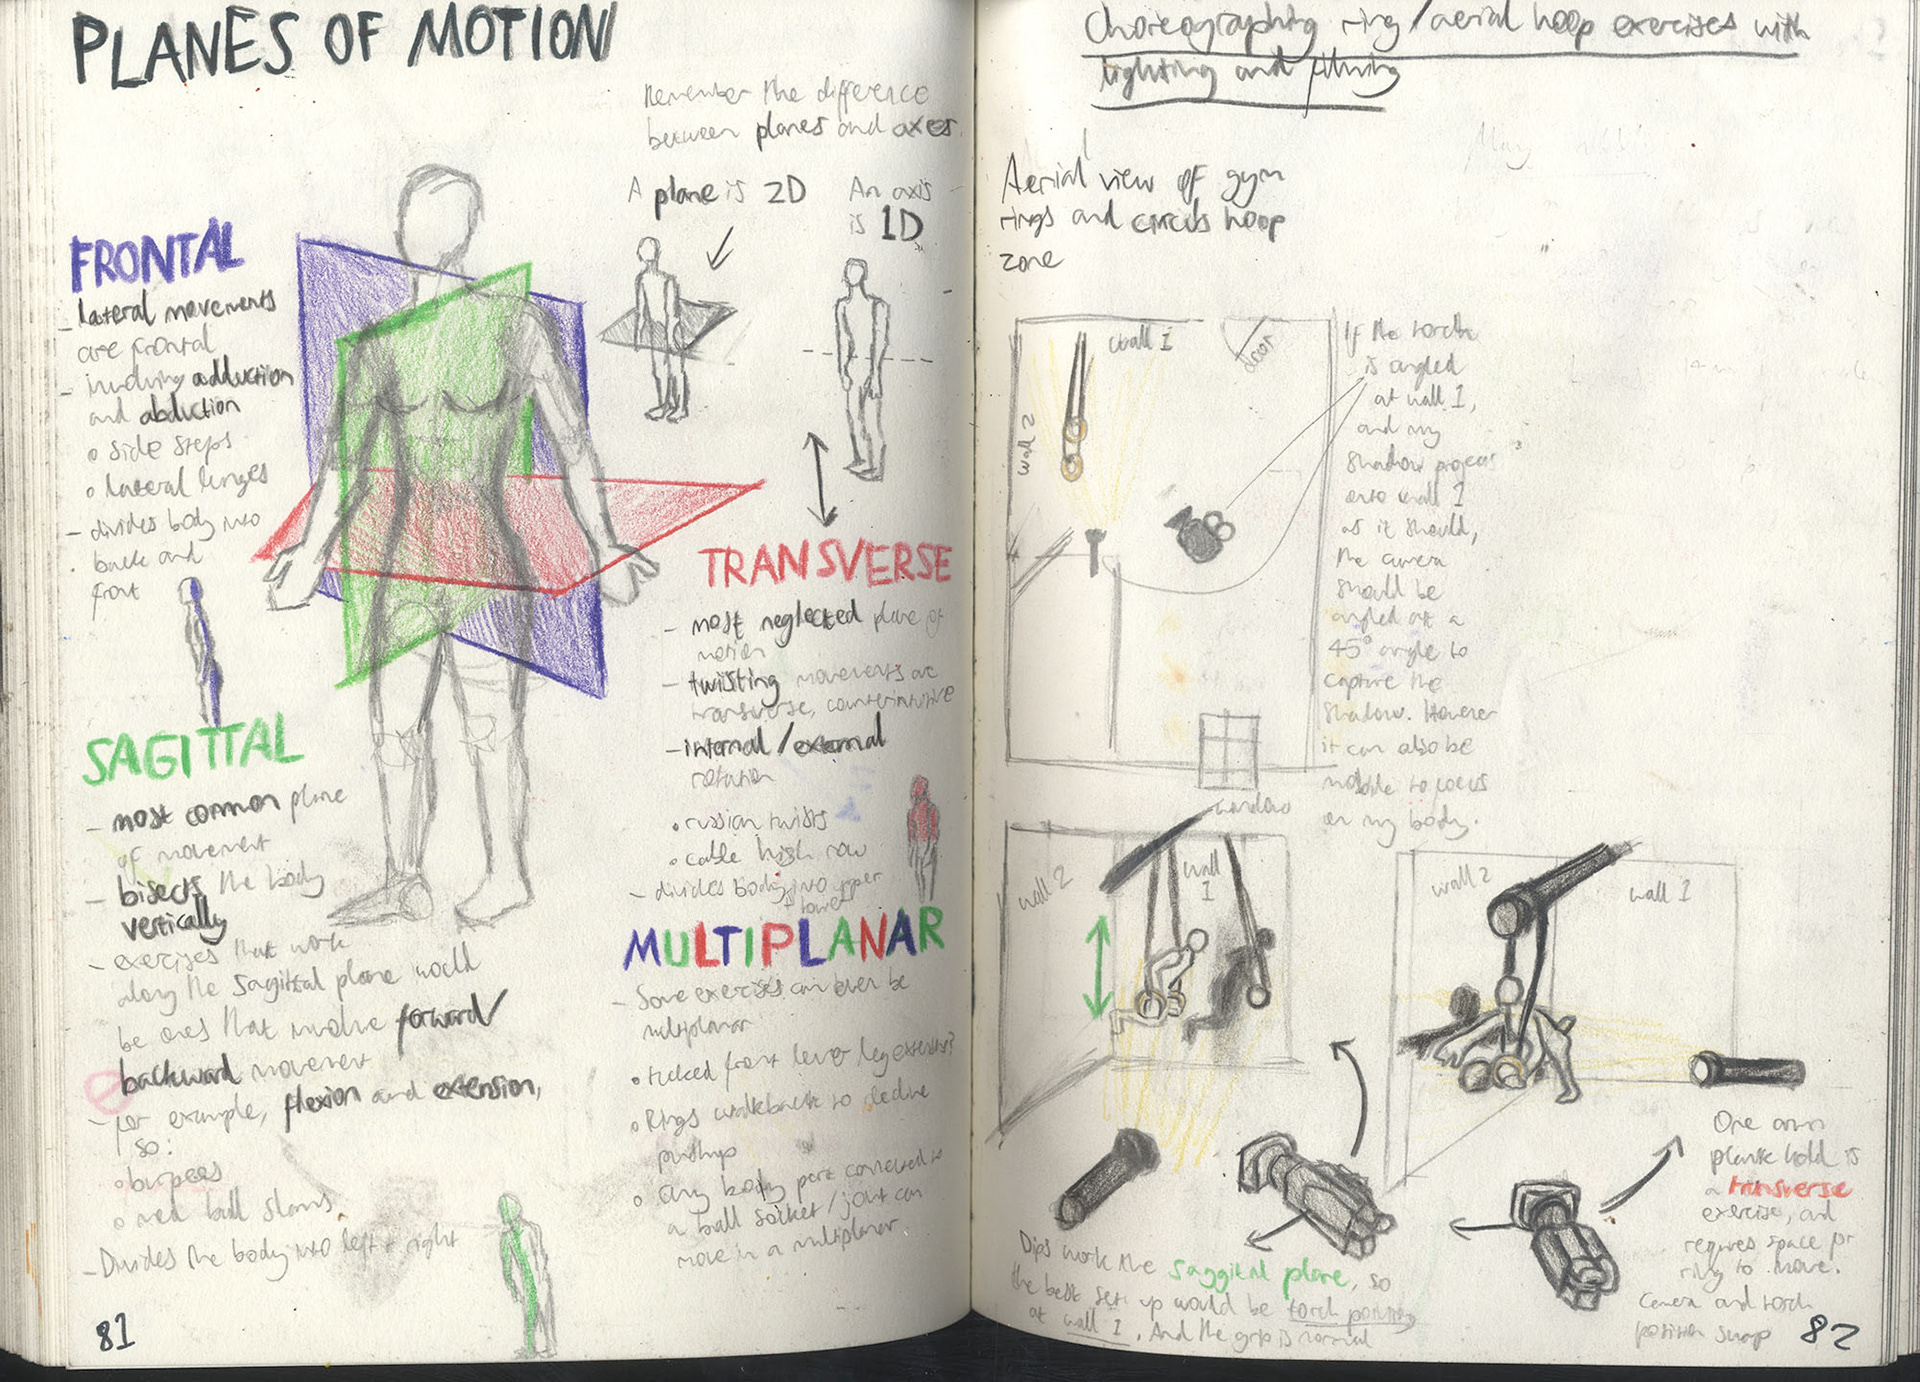 PLANES OF MOTION
Remember the difference
between planes and axes.
A plane is 2D
An axis
is 1D
FRONTAL
- lateral movements
are frontal
- involving adduction
and abduction
o side steps
o lateral lunges
- divides body into
back and
front
SAGITTAL
- most common plane
of movement
- bisects the body
vertically
- exercises that work
along the sagittal plane would
be ones that involve forward/
backward movement
- for example, flexion and extension,
so:
o burpees
o med ball slams
- Divides the body into left + right
TRANSVERSE
- most neglected plane of
motion
- twisting movements are
transverse, counterintuitive
- internal/external
rotation
• russian twists
o cable high row
- divides body into upper
+ lower
MULTIPLANAR
- Some exercises can even be
multiplanar
• tucked front lever leg extensions?
o Rings walkback to decline
pushup
o any body part connected to
a ball socket/joint can
move in a multiplanar.
81
Choreographing ring/aerial hoop exercises with
lighting and filming
May
Aerial view of gym
rings and circus hoop
zone
wall 1
door
wall 2
window
If the torch
is angled
at wall 1,
and my
shadow projects
onto wall 1
as it should,
the camera
should be
angled at a
45° angle to
capture the
shadow. However
it can also be
mobile to focus
on my body.
wall 2
wall
1
wall 2
wall 1
Dips work the saggital plane, so
the best set up would be torch pointing
at wall 1. And the grip is normal
One arm
plank hold is
a transverse
exercise, and
requires space for
ring to move.
Camera and torch
position swap
82